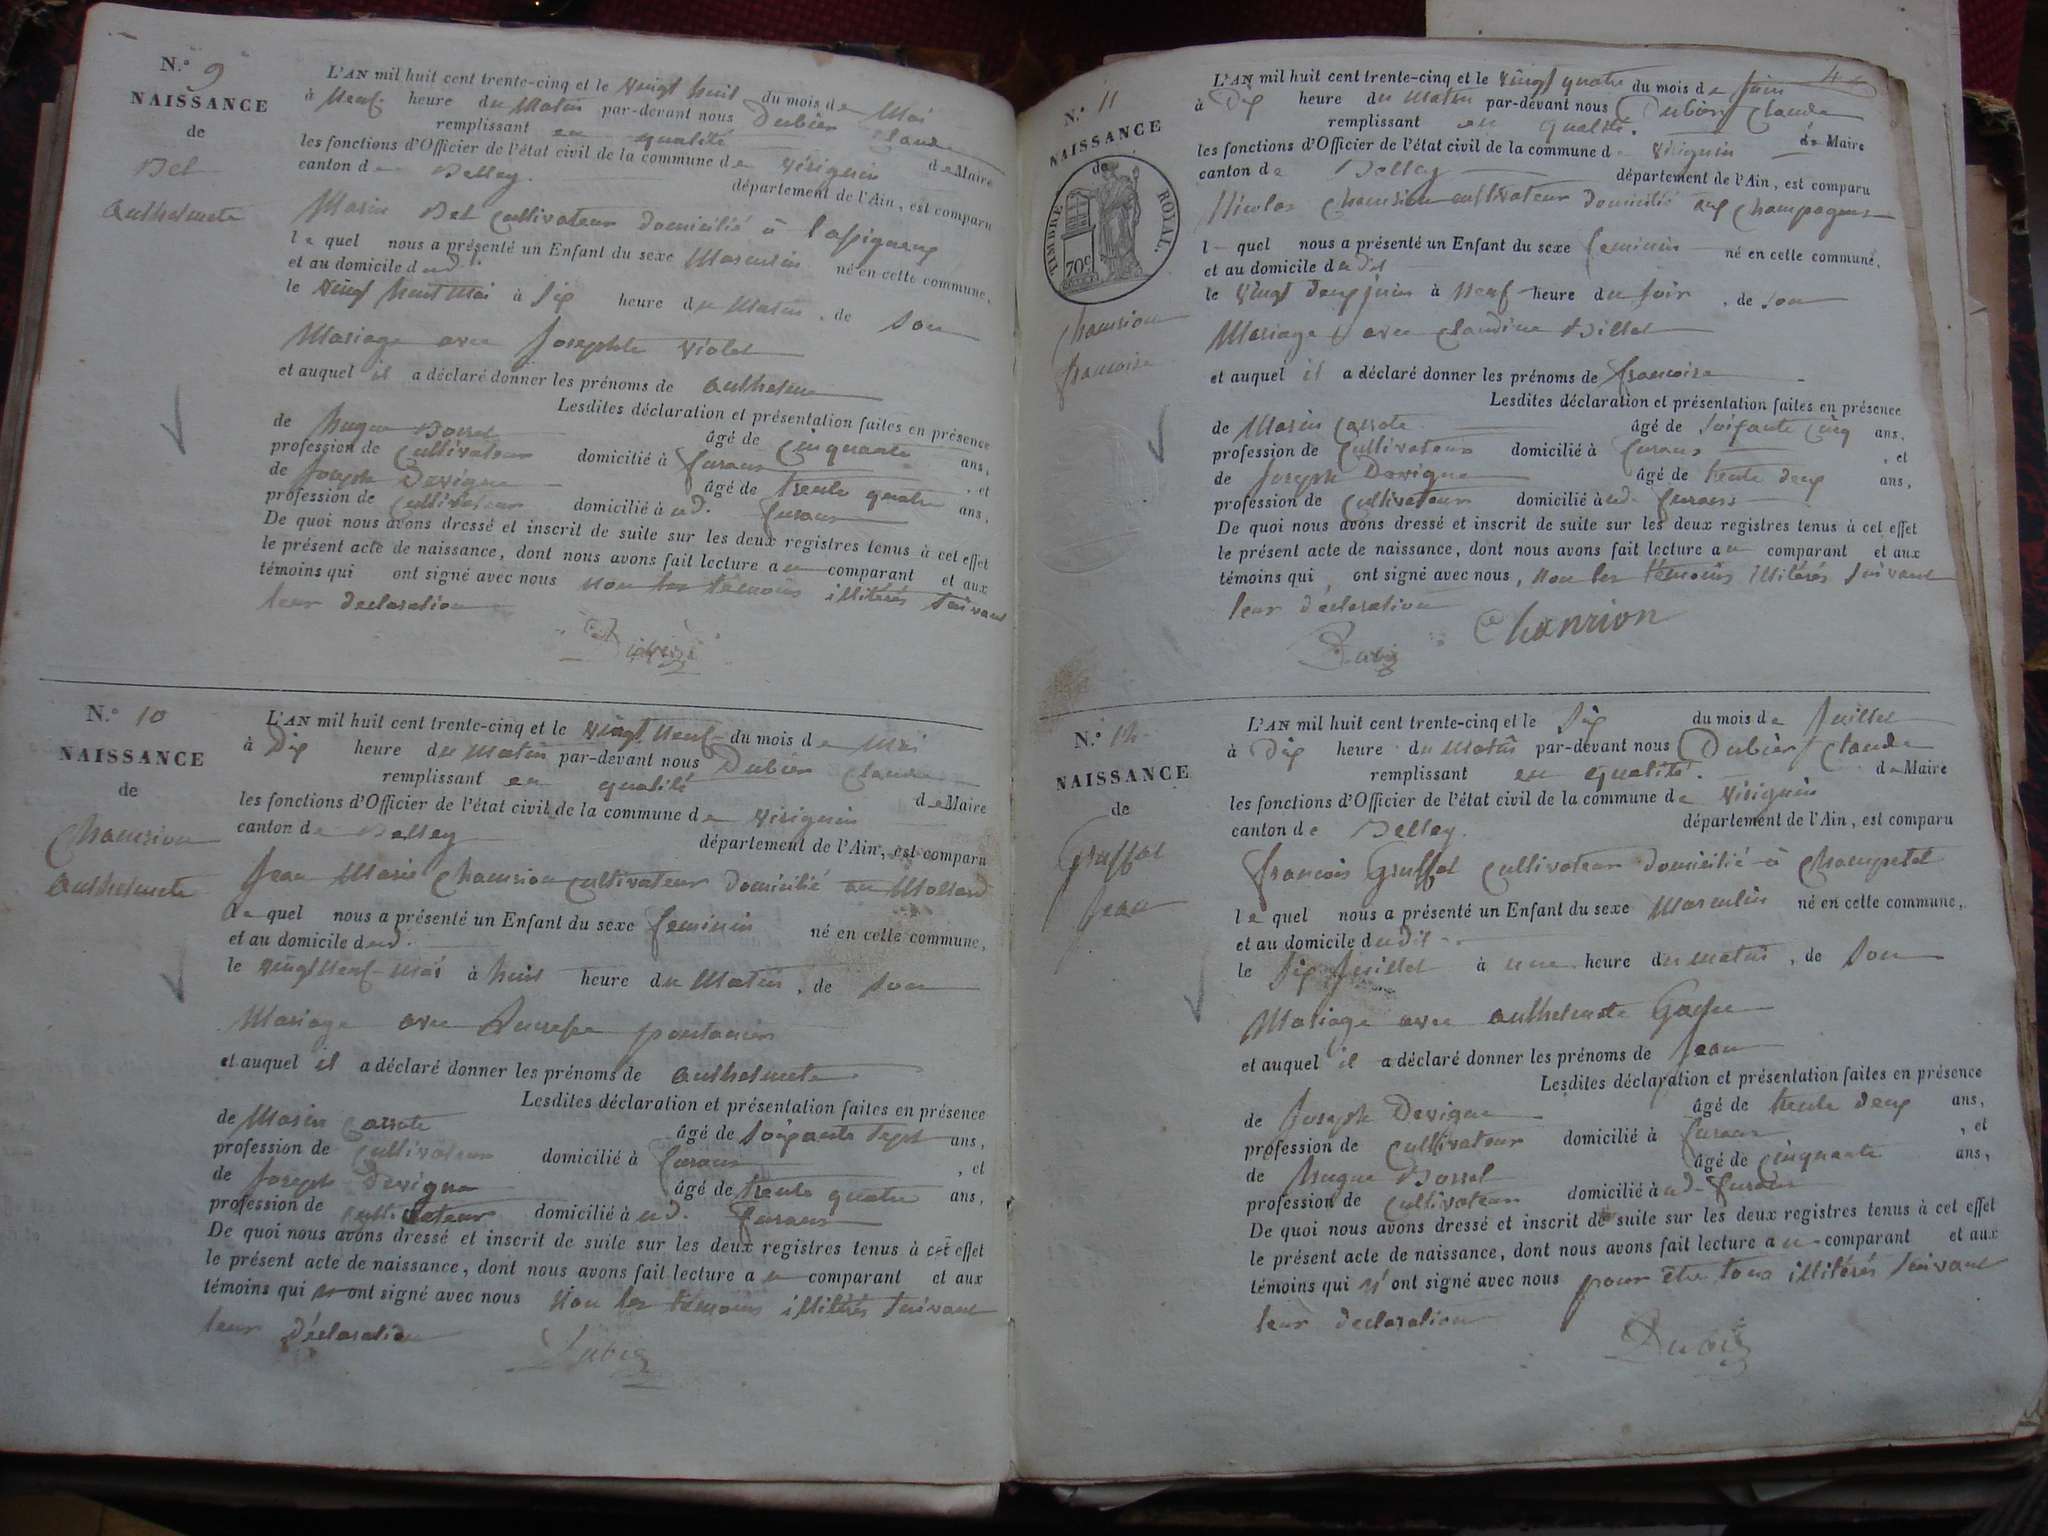 N.° 9
NAISSANCE
de
Bel
Anthelmette
L'AN mil huit cent trente-cinq et le vingt huit du mois de Mai
à Neuf heure du Matin par-devant nous Dubier Claude
remplissant en qualité de Maire
les fonctions d'Officier de l'état civil de la commune de virignin
canton de Belley. département de l'Ain, est comparu
Marin Bel Cultivateur domicilié à
le quel nous a présenté un Enfant du sexe Masculin né en cette commune,
et au domicile dud.
le vingt huit Mai à six heure du Matin, de son
Mariage avec Josephte Violet
et auquel il a déclaré donner les prénoms de anthelme
Lesdites déclaration et présentation faites en présence
de hugue Borsel âgé de Cinquante ans,
profession de Cultivateur domicilié à fusans, et
de Joseph Devigne âgé de trente quatre ans,
profession de Cultivateur domicilié à ud. fusans
De quoi nous avons dressé et inscrit de suite sur les deux registres tenus à cet effet
le présent acte de naissance, dont nous avons fait lecture au comparant et aux
témoins qui ont signé avec nous non les témoins illitérés suivant
leur declaration
N.° 10
NAISSANCE
de
Chanrion
Anthelmete
L'AN mil huit cent trente-cinq et le vingt Neuf du mois de Mai
à Dix heure du matin par-devant nous Dubier Claude
remplissant en qualité de Maire
les fonctions d'Officier de l'état civil de la commune de virignin
canton de Belley département de l'Ain, est comparu
Jean Marie Chanrion cultivateur domicilié au Mollard
le quel nous a présenté un Enfant du sexe feminin né en cette commune,
et au domicile dud.
le vingt Neuf Mai à huit heure du Matin, de son
Mariage avec pontanier
et auquel il a déclaré donner les prénoms de anthelmete
Lesdites déclaration et présentation faites en présence
de Marin Carrote âgé de soixante sept ans,
profession de cultivateur domicilié à fusans, et
de Joseph Devigne âgé de trente quatre ans,
profession de cultivateur domicilié à ud. fusans
De quoi nous avons dressé et inscrit de suite sur les deux registres tenus à cet effet
le présent acte de naissance, dont nous avons fait lecture au comparant et aux
témoins qui ont signé avec nous Non les témoins illitérés suivant
leur Déclaration
N.° 11
NAISSANCE
de
TIMBRE ROYAL.
70c
Chanrion
francoise
L'AN mil huit cent trente-cinq et le vingt quatre du mois de Juin
à Dix heure du Matin par-devant nous Dubier Claude
remplissant en qualité. de Maire
les fonctions d'Officier de l'état civil de la commune de virignin
canton de Belley département de l'Ain, est comparu
Nicolas Chanrion cultivateur domicilié aux Champagnes
l quel nous a présenté un Enfant du sexe feminin né en cette commune,
et au domicile dudit
le vingt deux juin à Neuf heure du soir, de son
Mariage avec Claudine Billet
et auquel il a déclaré donner les prénoms de francoise
Lesdites déclaration et présentation faites en présence
de Marin Carrote âgé de soixante cinq ans,
profession de Cultivateur domicilié à fusans, et
de Joseph Devigne âgé de trente deux ans,
profession de cultivateur domicilié à ud. fusans
De quoi nous avons dressé et inscrit de suite sur les deux registres tenus à cet effet
le présent acte de naissance, dont nous avons fait lecture au comparant et aux
témoins qui ont signé avec nous, Non les témoins illitérés suivant
leur déclaration
Chanrion
N.° 12
NAISSANCE
de
Gruffat
Jean
L'AN mil huit cent trente-cinq et le six du mois de Juillet
à Dix heure du Matin par-devant nous Dubier Claude
remplissant en qualité. de Maire
les fonctions d'Officier de l'état civil de la commune de virignin
canton de Belley. département de l'Ain, est comparu
françois Gruffat Cultivateur domicilié à Champetel
le quel nous a présenté un Enfant du sexe Masculin né en cette commune,
et au domicile dudit
le six Juillet à une heure du matin, de son
Mariage avec anthelmete
et auquel il a déclaré donner les prénoms de Jean
Lesdites déclaration et présentation faites en présence
de Joseph Devigne âgé de trente deux ans,
profession de cultivateur domicilié à fusans, et
de hugue Borsel âgé de cinquante ans,
profession de cultivateur domicilié à ud. fusans
De quoi nous avons dressé et inscrit de suite sur les deux registres tenus à cet effet
le présent acte de naissance, dont nous avons fait lecture au comparant et aux
témoins qui n'ont signé avec nous pour être tous illitérés suivant
leur declaration